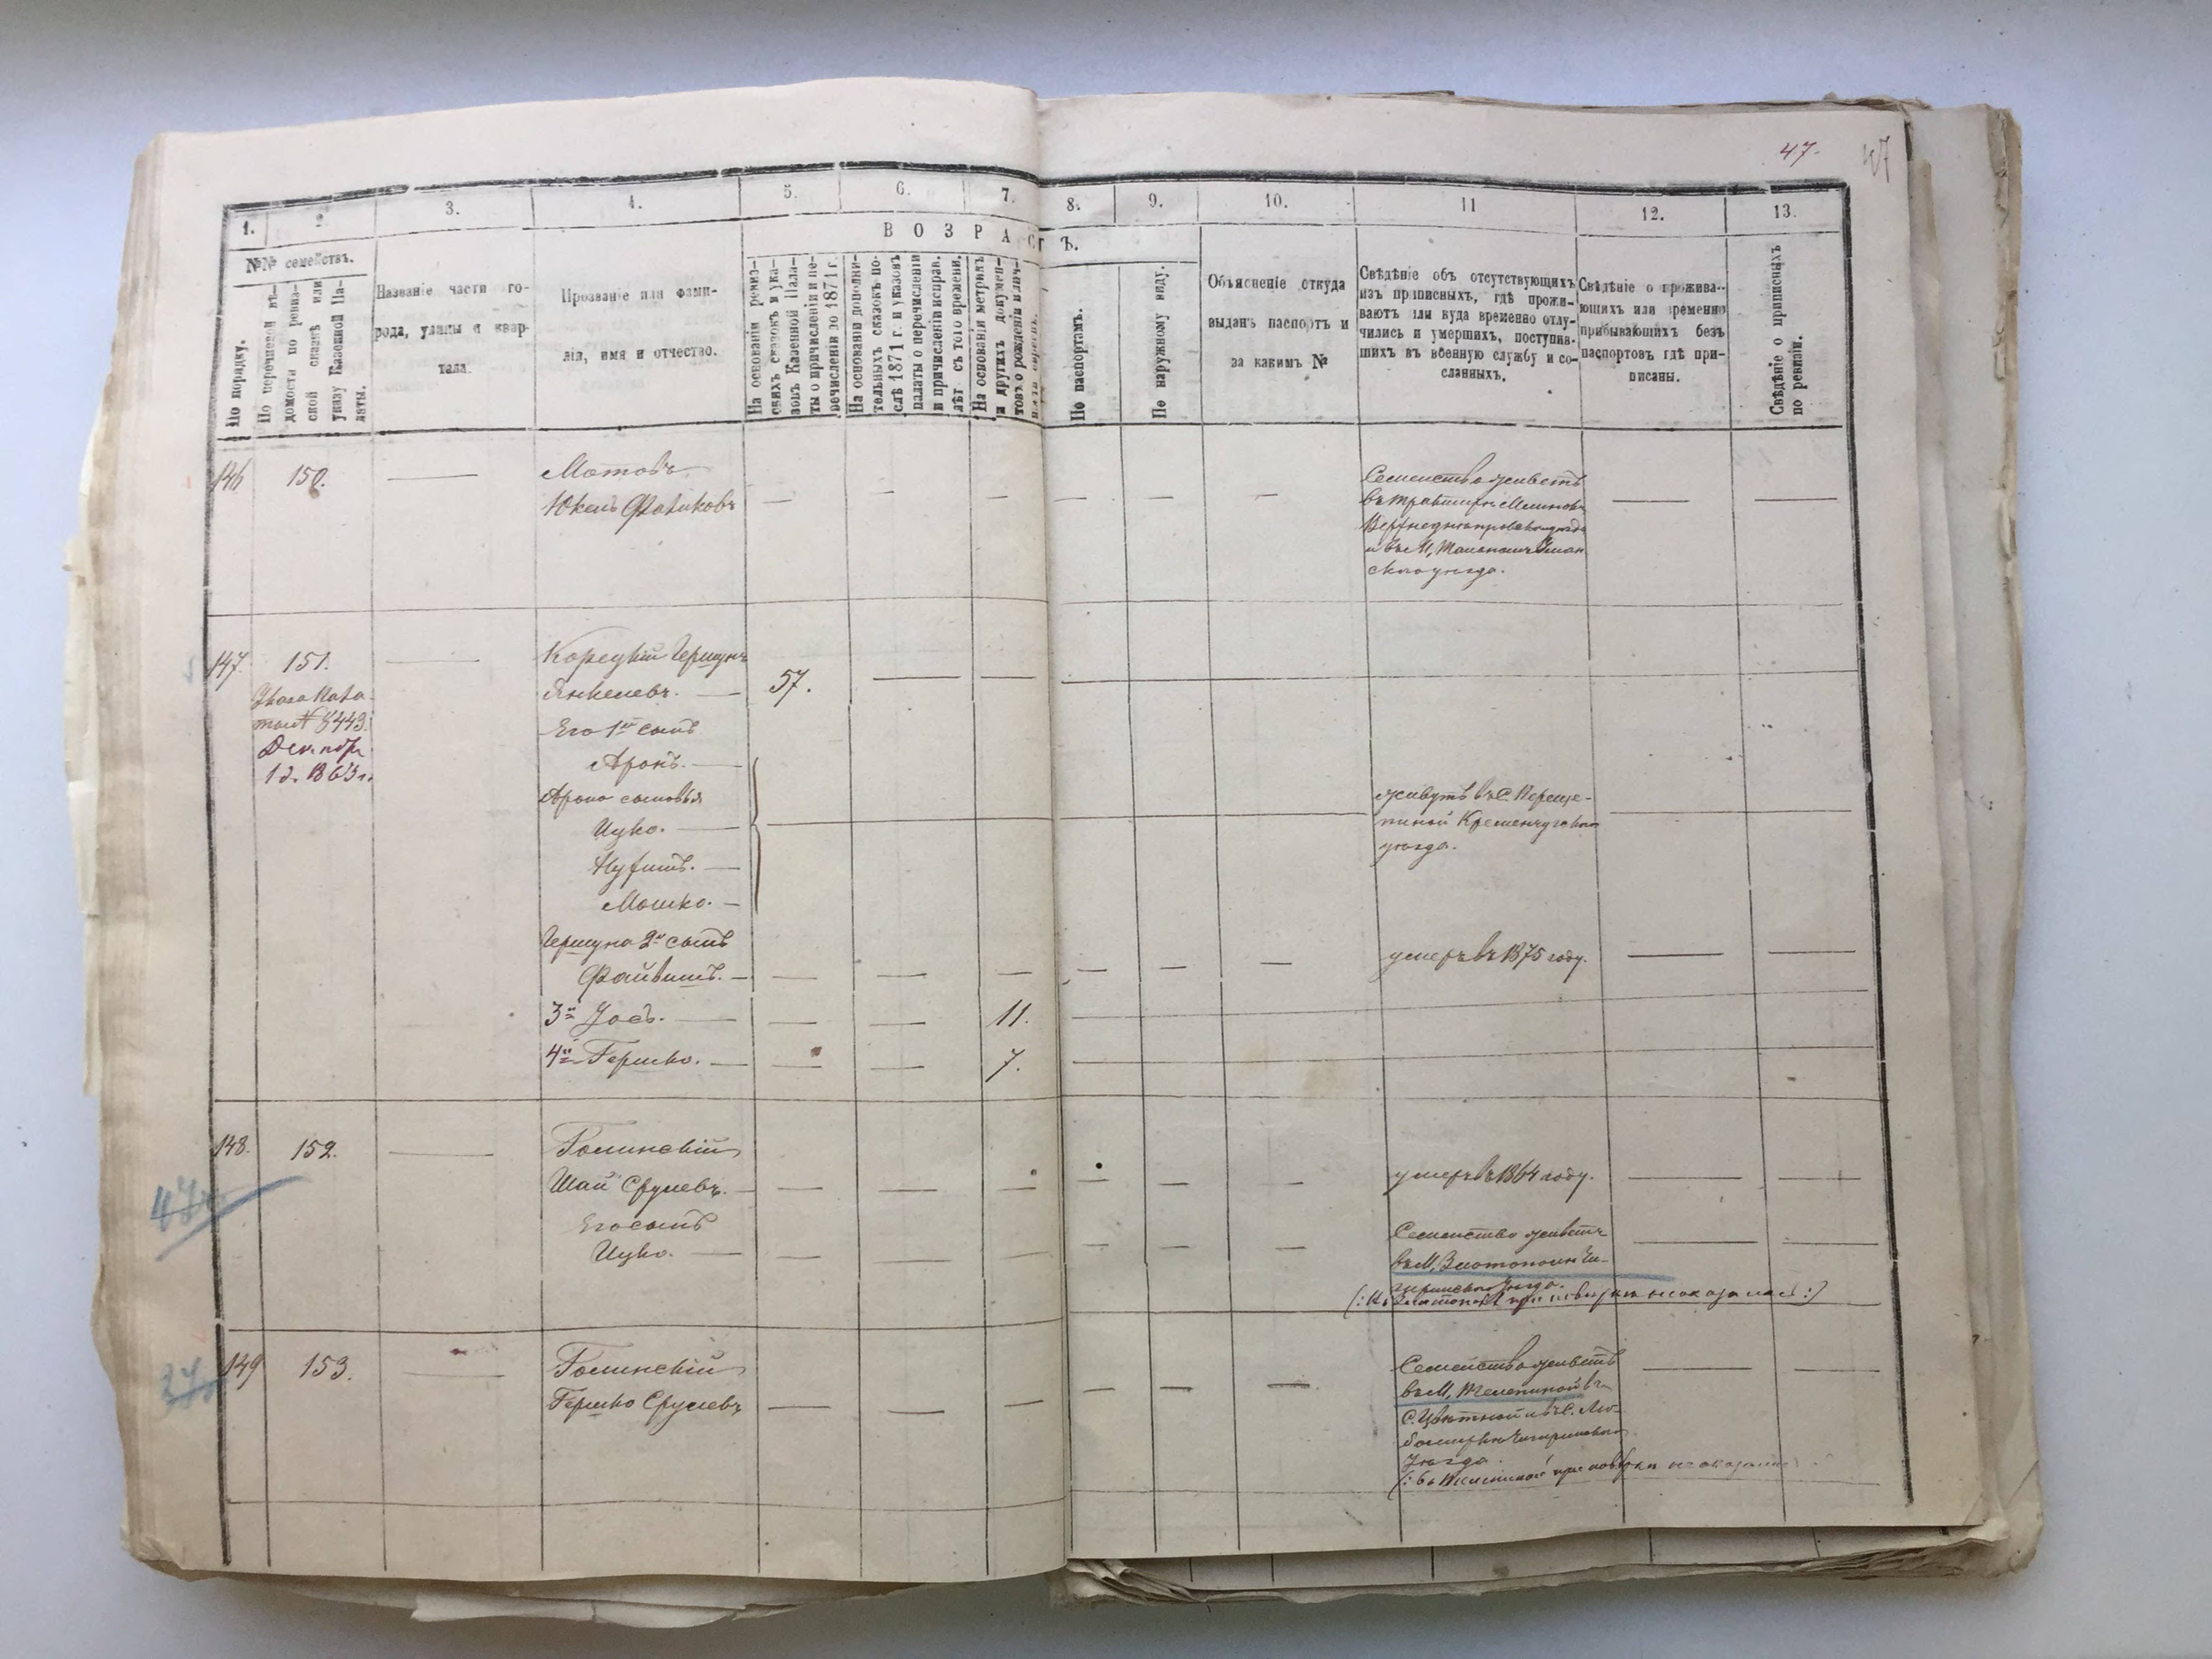 47.
47
1.
2.
3.
4.
5.
6.
7.
8.
9.
10.
11
12.
13.
ВОЗРАСТЪ.
№№ семействъ.
По порядку.
По перечневой вѣ-
домости по ревиз-
ской сказкѣ или
указу Казенной Па-
латы.
Названіе части го-
рода, улицы и квар-
тала.
Прозваніе или фами-
лія, имя и отчество.
На основаніи ревиз-
скихъ сказокъ и ука-
зовъ Казенной Пала-
ты о причисленіи и пе-
речисленіи до 1871 г.
На основаніи дополни-
тельныхъ сказокъ по-
слѣ 1871 г. и указовъ
палаты о перечисленіи
и причисленіи исправ.
лѣт съ того времени.
На основаніи метрикъ
и другихъ докумен-
товъ о рожденіи
По паспортамъ.
По наружному виду.
Объясненіе откуда
выданъ паспортъ и
за какимъ №
Свѣдѣніе объ отсутствующихъ
изъ приписныхъ, гдѣ прожи-
ваютъ или куда временно отлу-
чились и умершихъ, поступив-
шихъ въ военную службу и со-
сланныхъ.
Свѣдѣніе о прожива-
ющихъ или временно
прибывающихъ безъ
паспортовъ гдѣ при-
писаны.
Свѣдѣніе о приписныхъ
по ревизіи.
146
150.
Мотовъ
Юкель Файиковъ
Семейство живетъ
въ
Верхнеднепровскаго уѣзда
и въ М. Тальномъ Уман
скаго уѣзда.
147.
151.
Указа Пала-
ты № 8443
Декабря
12. 1863 г.
Корецкій Гершунъ
Янкелевъ.
57.
Его 1й сынъ
Аронъ.
Арона сыновья
Ицко.
Нухимъ.
Мошко.
живутъ въ С. Переще-
пиной Кременчугскаго
уѣзда.
Гершуна 2й сынъ
Файвишъ.
умеръ въ 1875 году.
3й Іосъ.
11.
4й Гершко.
7.
148.
152.
Голинскій
Шай Срулевъ.
умеръ въ 1864 году.
Его сынъ
Ицко.
Семейство живетъ
въ М. Златополи Чи-
гиринскаго уѣзда.
(: въ Златополѣ при повѣркѣ не оказались :)
149
153.
Голинскій
Гершко Срулевъ
Семейство живетъ
въ М. Телепиной въ
С. Цвѣтной и въ С. Лю-
бомиркѣ Чигиринскаго
Уѣзда.
(: въ Телепиной при повѣркѣ не оказались